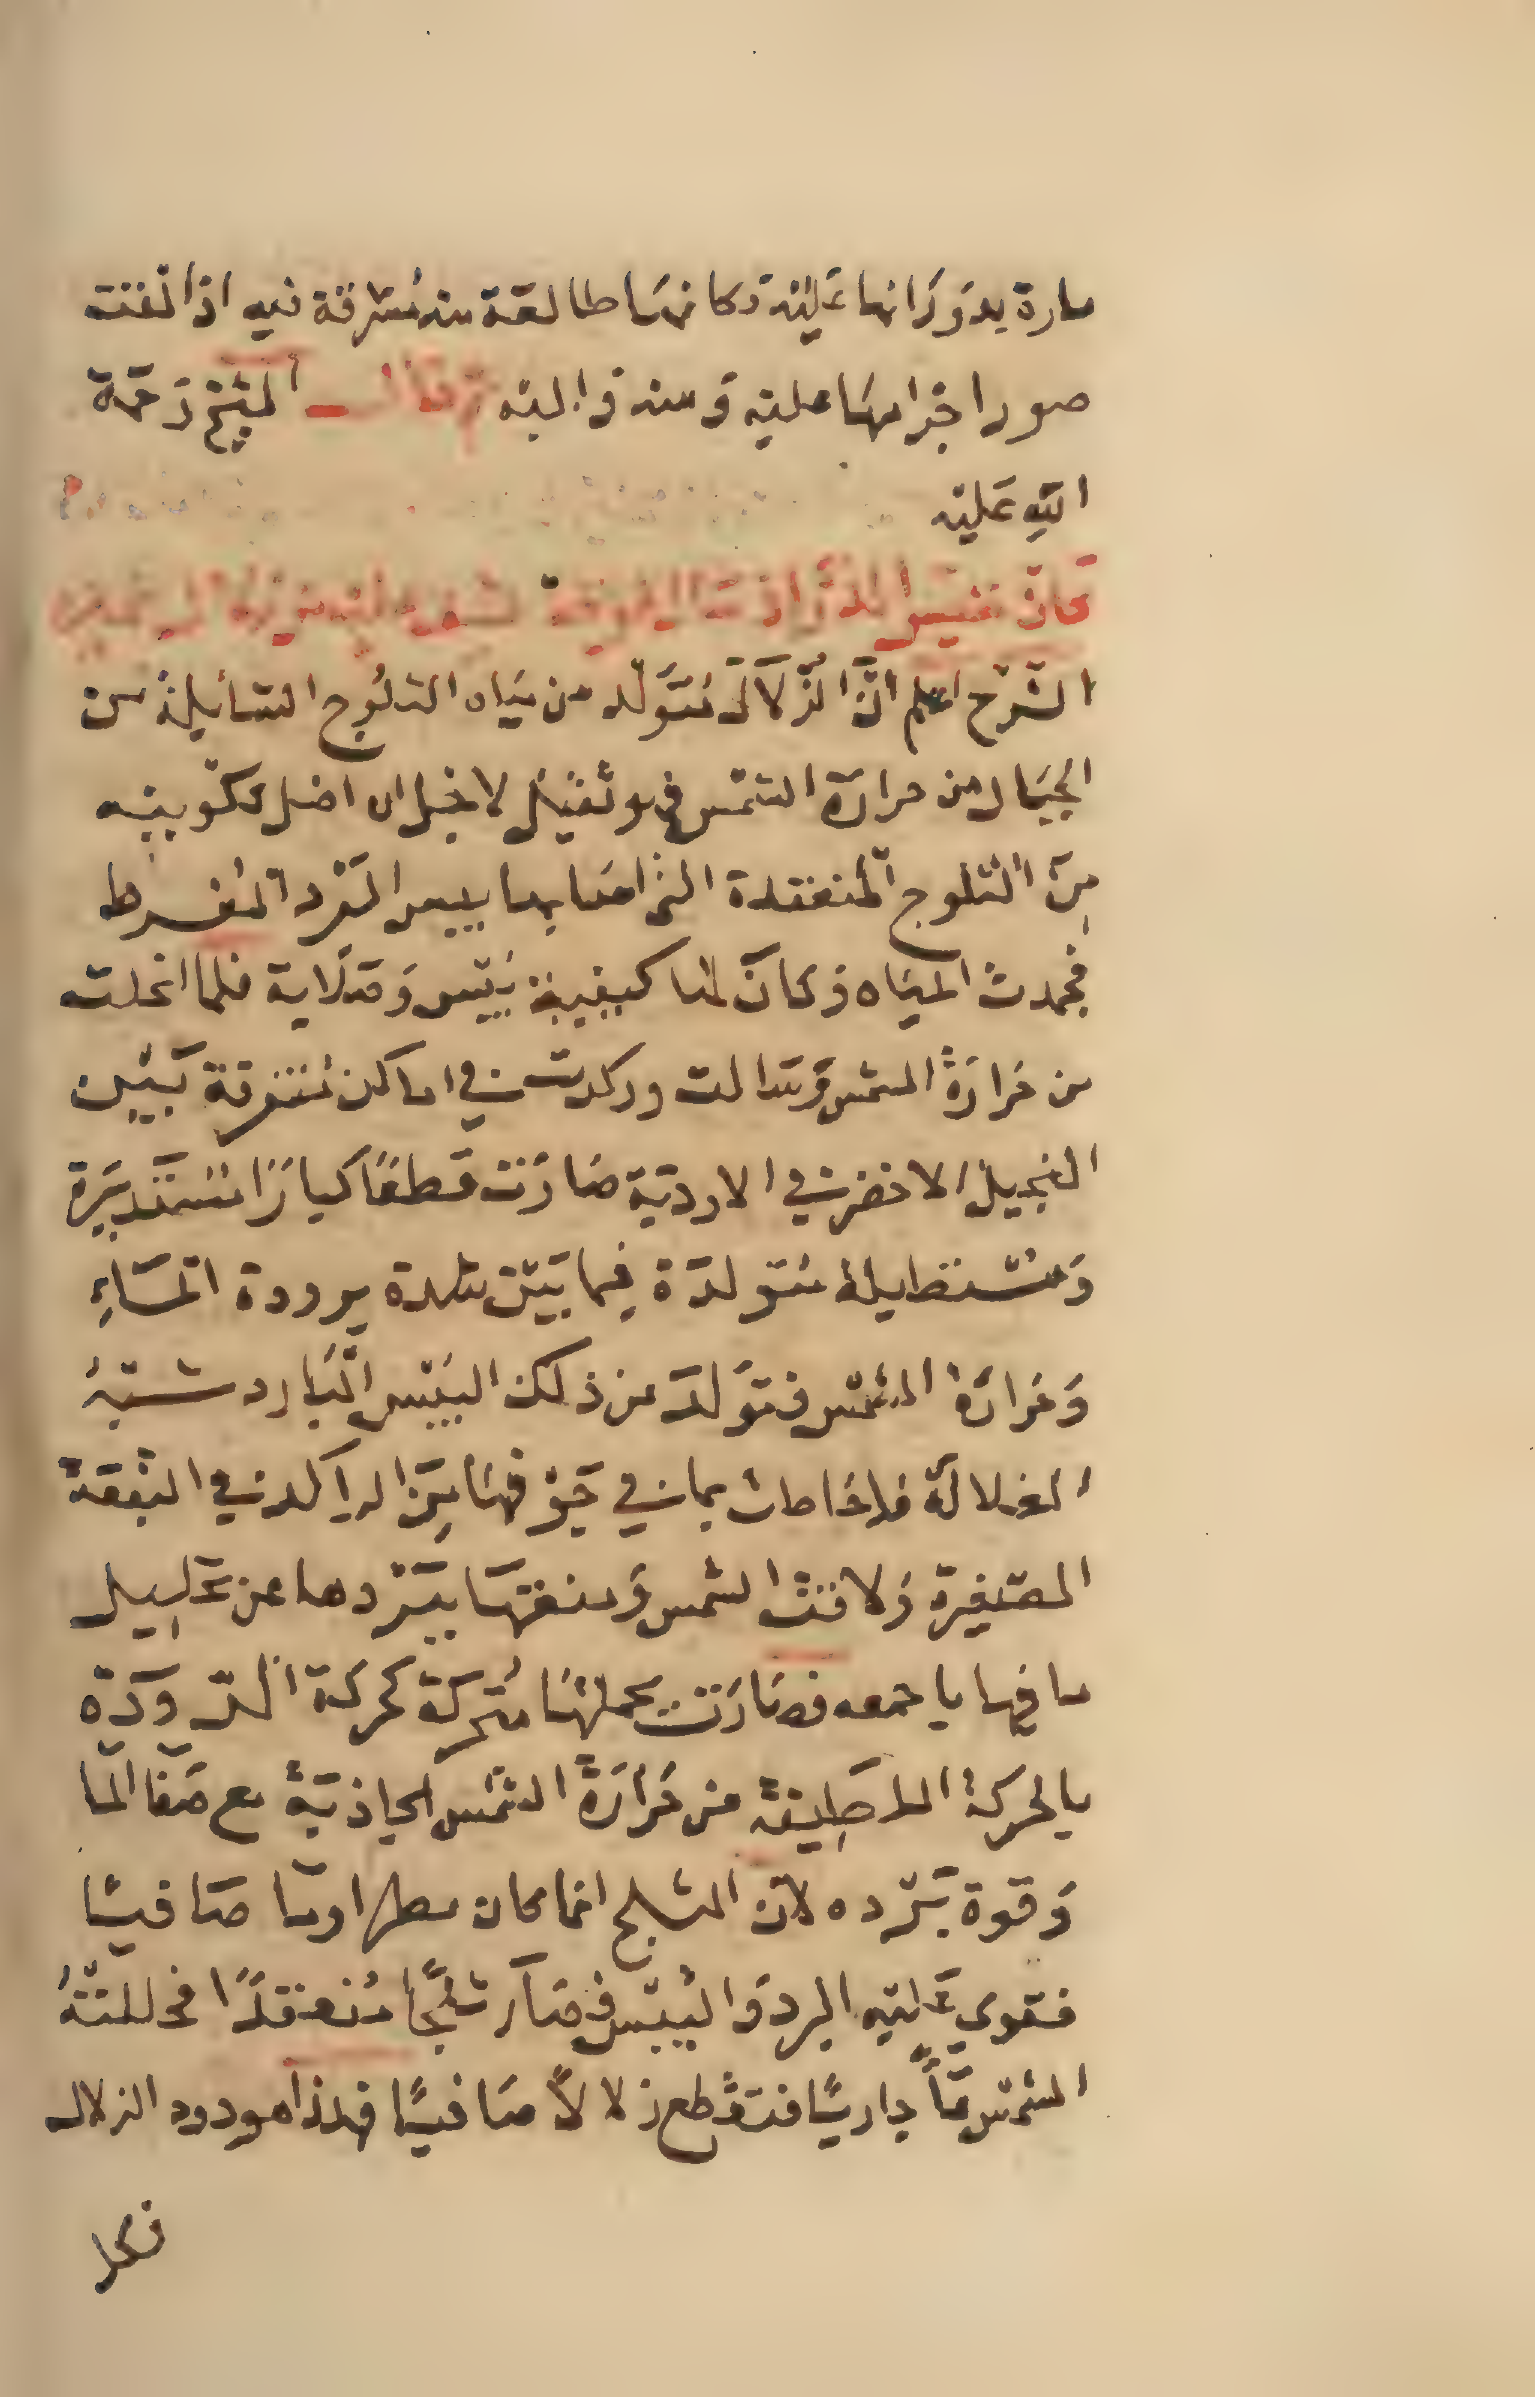 مارة بدورانها عليه وكانها طالعة منه مشرقة فيه اذا لفت
صور اجرامها عليه ومنه واليه ثم قال الشيخ رحمة
الله عليه
كان نفيس
الشرح اعلم ان الزلال متولد من مياه الثلوج السائلة من
الجبال من حرارة الشمس فهو ثقيل لاجل ان اصل تكوينه
من الثلوج المنعقدة التي اصابها يبس البرد المفرط
فجمدت المياه وكان لها كيفية يبس وصلابة فلما انحلت
من حرارة الشمس وسالت وركدت في اماكن متفرقة بين
النجيل الاخضر في الاردية صارت قطعا كبارا مستديرة
ومستطيلة متولدة فيما بين شدة برودة الماء
وحرارة الشمس فتولد من ذلك اليبس البارد شبه
الغلالة فاحاطت بما في جوفها من الراكد في البقعة
الصغيرة ولاقت الشمس ومنعتها ببردها عن تحليل
ما فيها باجمعه فصارت بجملتها متحركة كحركة الدودة
بالحركة اللطيفة من حرارة الشمس الجاذبة مع صفا الما
وقوة برده لان الثلج انما كان مطرا وما صافيا
فقوي عليه البرد واليبس فصار ثلجا منعقدا فحللته
الشمس مآ جاريا فتقطع زلالا صافيا فهذا هو دود الزلال